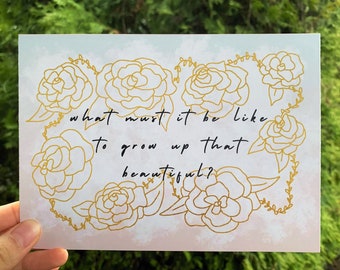 what must it be like
to grow up that
beautiful?